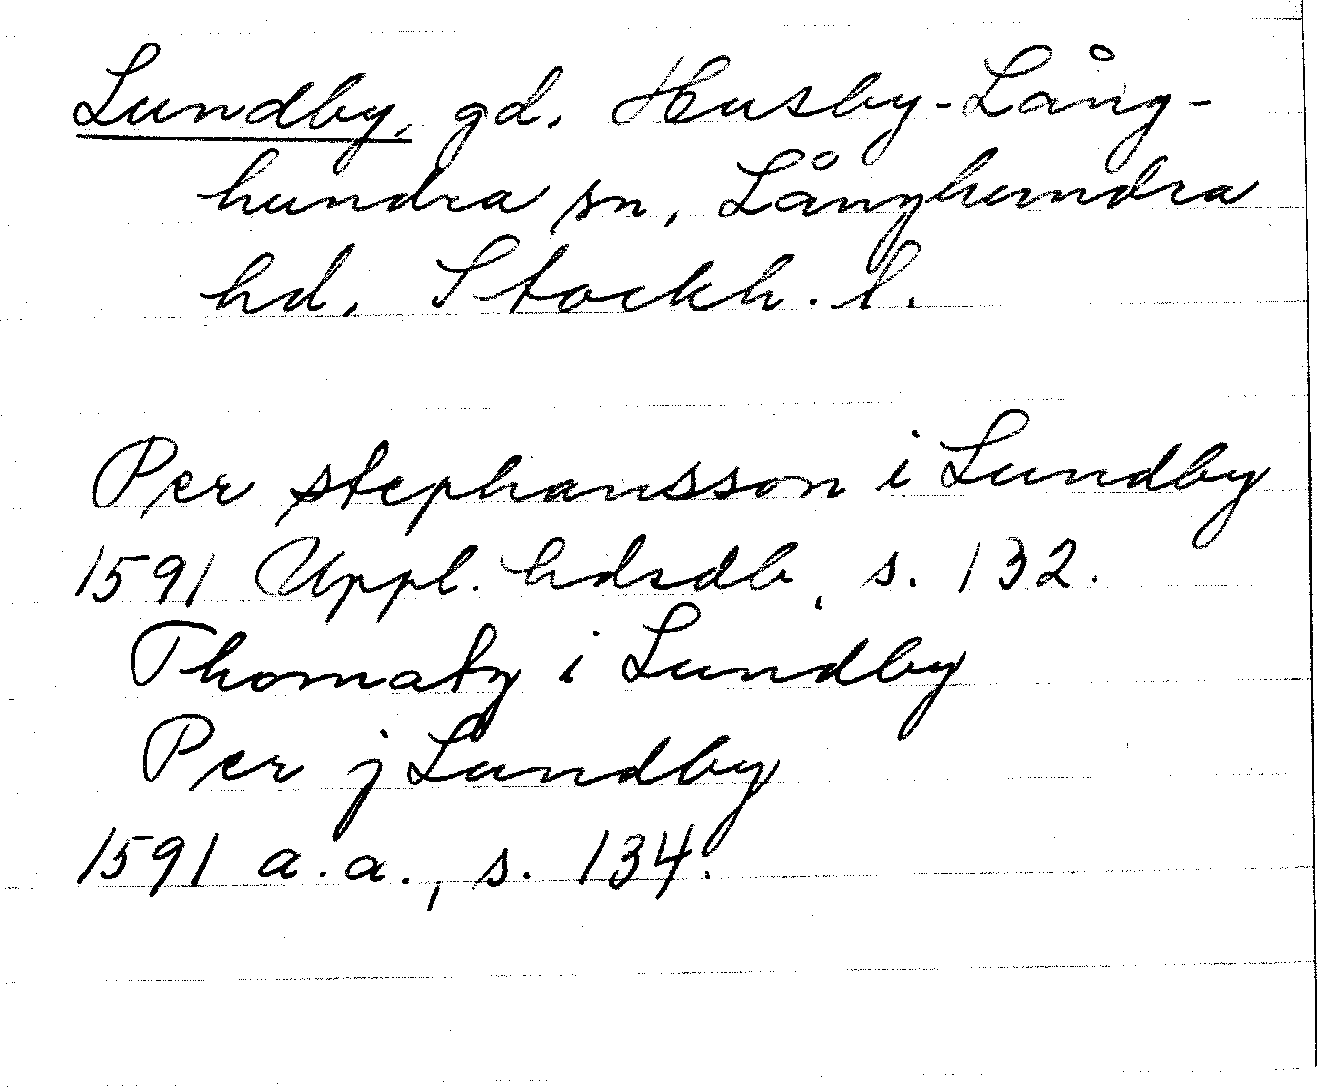 Lundby, gd. Husby-Lång-
hundra sn, Långhundra
hd, Stockh. l.
Per stephansson i Lundby
1591 Uppl. hdrdb, s. 132.
Thomatz i Lundby
Per j Lundby
1591 a.a., s. 134.